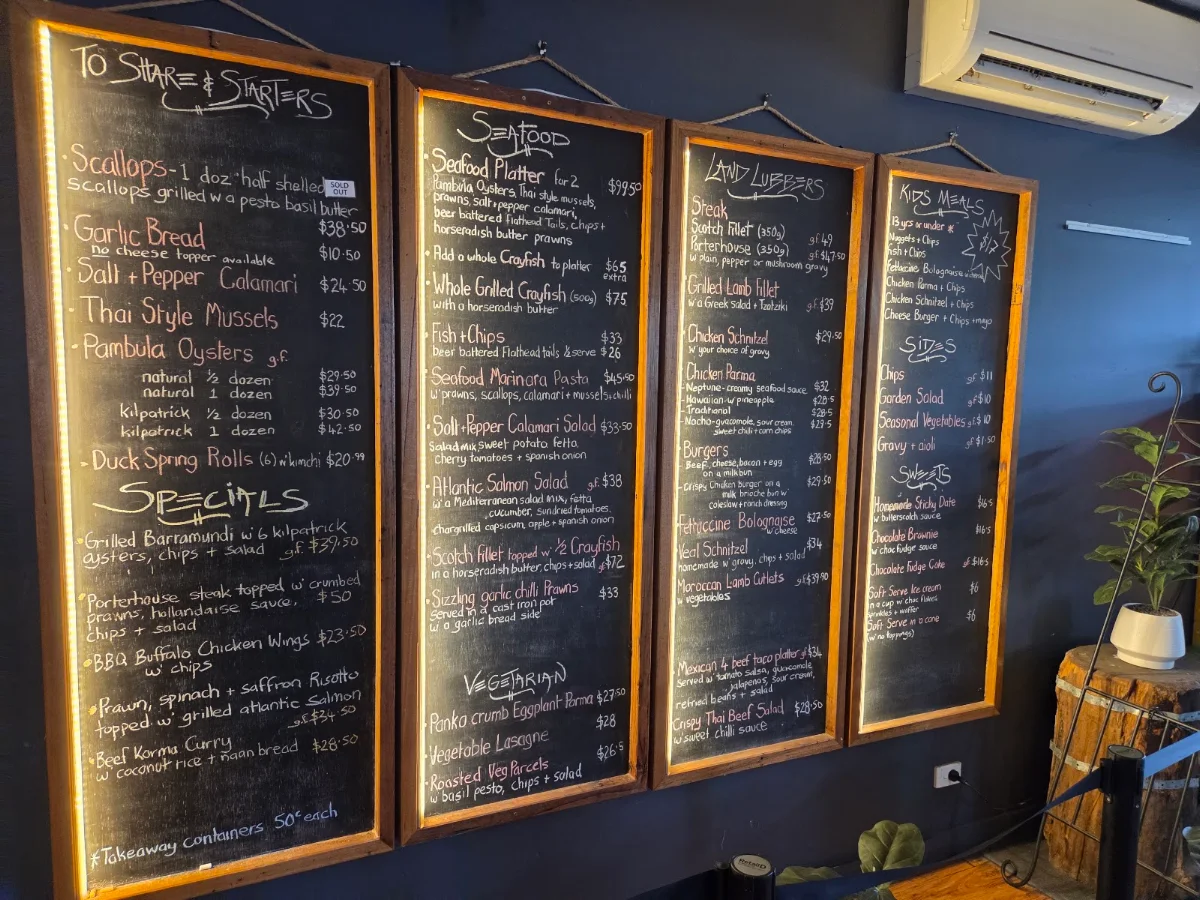 TO SHARE & STARTERS
• Scallops - 1 doz half shelled
SOLD OUT
scallops grilled w a pesto basil butter
$38.50
• Garlic Bread $10.50
no cheese topper available
• Salt + Pepper Calamari $24.50
Thai Style Mussels $22
• Pambula Oysters g.f.
natural ½ dozen $29.50
natural 1 dozen $39.50
kilpatrick ½ dozen $30.50
kilpatrick 1 dozen $42.50
• Duck Spring Rolls (6) w kimchi $20.99
SPECIALS
• Grilled Barramundi w 6 kilpatrick
oysters, chips + salad g.f. $39.50
Porterhouse steak topped w' crumbed
prawns, hollandaise sauce, $50
chips + salad
• BBQ Buffalo Chicken Wings $23.50
w' chips
• Prawn, spinach + saffron Risotto
topped w' grilled atlantic Salmon
g.f. $34.50
• Beef Korma Curry
w' coconut rice + naan bread $28.50
*Takeaway containers 50c each
SEAFOOD
• Seafood Platter for 2 $99.50
Pambula Oysters, Thai style mussels,
prawns, salt + pepper calamari,
beer battered Flathead Tails, Chips +
horseradish butter prawns
• Add a whole Crayfish to platter $65
extra
• Whole Grilled Crayfish (500g) $75
with a horseradish butter
• Fish + Chips $33
beer battered Flathead tails ½ serve $26
• Seafood Marinara Pasta $45.50
w prawns, scallops, calamari + mussels + chilli
• Salt + Pepper Calamari Salad $33.50
Salad mix, sweet potato fetta
cherry tomatoes + spanish onion
• Atlantic Salmon Salad g.f. $38
w a Mediterranean salad mix, fetta,
cucumber, sundried tomatoes,
chargrilled capsicum, apple + spanish onion
• Scotch fillet topped w' ½ Crayfish
in a horseradish butter, chips + salad gf $72
• Sizzling garlic chilli Prawns $33
served in a cast iron pot
w a garlic bread side
VEGETARIAN
• Panko crumb Eggplant Parma $27.50
• Vegetable Lasagne $28
• Roasted Veg Parcels $26.5
w basil pesto, chips + salad
LAND LUBBERS
Steak
Scotch Fillet (350g) g.f. 49
Porterhouse (350g) g.f. $47.50
w plain, pepper or mushroom gravy
• Grilled Lamb Fillet
w a Greek salad + Tzatziki g.f. $39
• Chicken Schnitzel $29.50
w your choice of gravy
• Chicken Parma
- Neptune - creamy seafood sauce $32
- Hawaiian w pineapple $28.5
- Traditional $28.5
- Nacho - guacamole, sour cream
sweet chilli + corn chips
Burgers
- Beef, cheese, bacon + egg $28.50
on a milk bun
- Crispy Chicken burger on a $29.50
milk brioche bun w
coleslaw + ranch dressing
Fettuccine Bolognaise $27.50
w cheese
Veal Schnitzel $34
homemade w gravy, chips + salad
Moroccan Lamb Cutlets g.f. $39.90
w vegetables
Mexican 4 beef taco platter gf $34
Served w tomato salsa, guacamole,
jalapenos, sour cream,
refried beans + salad
Crispy Thai Beef Salad $28.50
w sweet chilli sauce
KIDS MEALS
13 yrs or under *
Nuggets + Chips
Fish + Chips
Fettuccine Bolognaise
Chicken Parma + Chips
Chicken Schnitzel + Chips
Cheese Burger + Chips + mayo
SIDES
Chips gf $11
Garden Salad gf $10
Seasonal Vegetables gf $10
Gravy + aioli gf $1.50
SWEETS
Homemade Sticky Date $16.5
w butterscotch sauce
Chocolate Brownie $16.5
w choc fudge sauce
Chocolate Fudge Cake gf $16.5
Soft Serve Ice cream $6
in a cup w choc flakes
sprinkles + waffer
Soft Serve in a cone $6
(w no toppings)